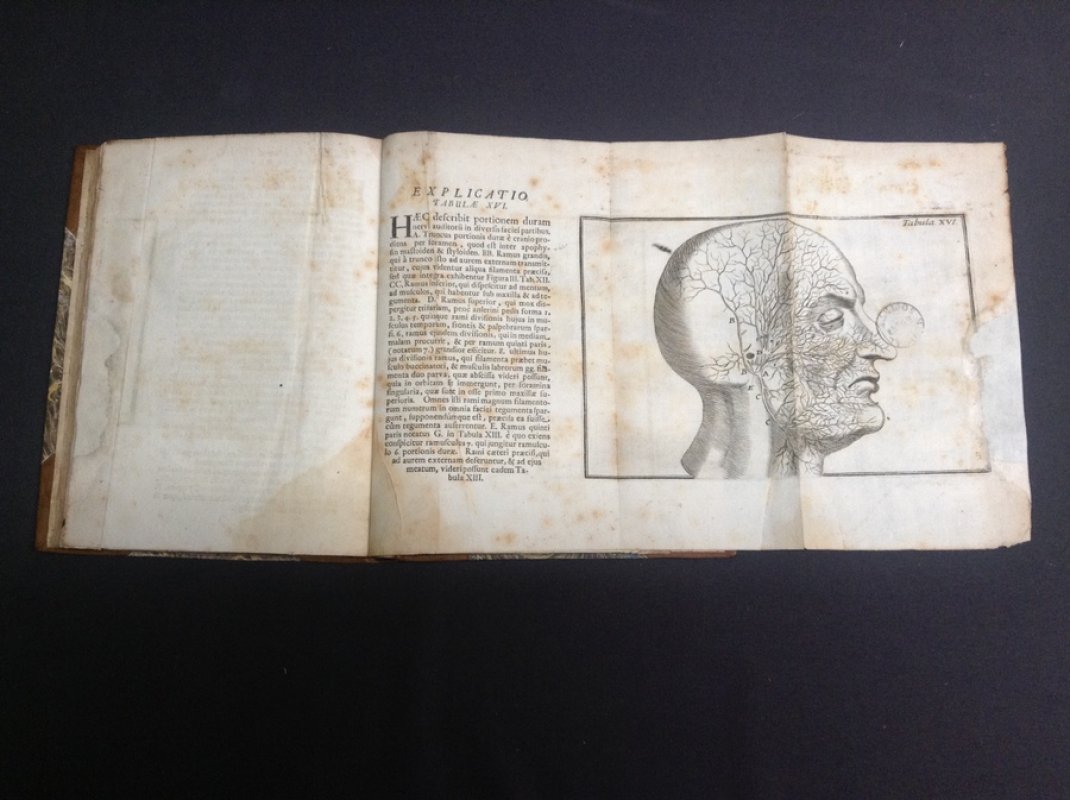 EXPLICATIO
TABULÆ XVI.
HÆC describit portionem duram
nervi auditorii in diversis faciei partibus.
A. Truncus portionis duræ è cranio pro-
diens per foramen, quod est inter apophy-
sin mastoiden & styloiden. BB. Ramus grandis,
qui à trunco isto ad aurem externam transmit-
titur, cujus videntur aliqua filamenta præcisa,
sed quæ integra exhibentur Figura III. Tab. XII.
CC. Ramus inferior, qui dispescitur ad mentum,
ad musculos, qui habentur sub maxilla & ad te-
gumenta. D. Ramus superior, qui mox dis-
pergitur etiam, pene anserini pedis forma 1.
2. 3. 4. 5. quinque rami divisionis hujus in mu-
sculos temporum, frontis & palpebrarum spar-
si. 6. ramus ejusdem divisionis, qui in mediam
malam procurrit, & per ramum quinti paris,
(notatum 7.) grandior efficitur. 8. ultimus hu-
jus divisionis ramus, qui filamenta præbet mu-
sculo buccinatori, & musculis labrorum gg. fila-
menta duo parva, quæ abscissa videri possunt,
quia in orbitam se immergunt, per foramina
singularia, quæ sunt in osse primo maxillæ su-
perioris. Omnes isti rami magnum filamento-
rum numerum in omnia faciei tegumenta spar-
gunt, supponendumque est, præcisa ea fuisse,
cùm tegumenta auferrentur. E. Ramus quinti
paris notatus G. in Tabula XIII. è quo exiens
conspicitur ramusculus 7. qui jungitur ramuscu-
lo 6. portionis duræ. Rami cæteri præcisi, qui
ad aurem externam deferuntur, & ad ejus
meatum, videri possunt eadem Ta-
bula XIII.
Tabula XVI.
B
D
B
A
E
C
C